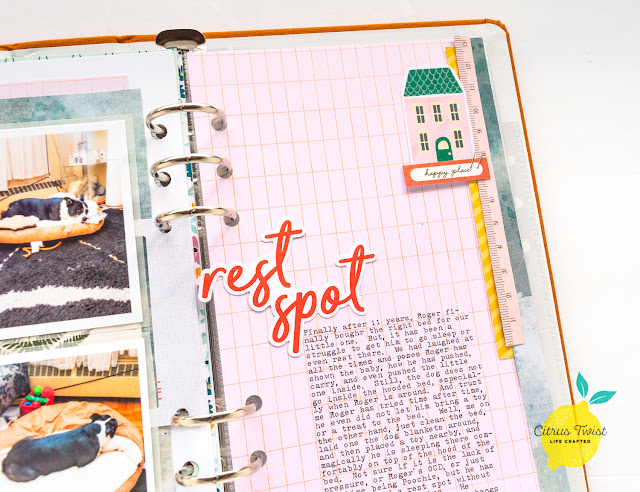 happy place
rest
spot
Finally after 11 years, Roger fi-
nally bought the right bed for our
little one. But, it has been a
struggle to get him to go sleep or
even rest there. We had laughed at
all the times and poses Roger has
shown the baby, how he has pushed,
carry, and even pushed the little
one inside. Still, the dog does not
go inside the hooded bed, especial-
ly when Roger is around. And trust
me Roger has tried time after time,
he even did not let him bring a toy
or a treat to the bed. Well, me on
the other hand, just clean the bed,
laid one the dog blankets around,
and then placed a toy nearby, and
magically he is sleeping there com-
fortably on top of the hood of the
bed. Not sure if it is the lack of
pressure, or Roger's OCD, or just
being Poochie, but he has
rest spot without
He
hangs
Citrus Twist
LIFE CRAFTED